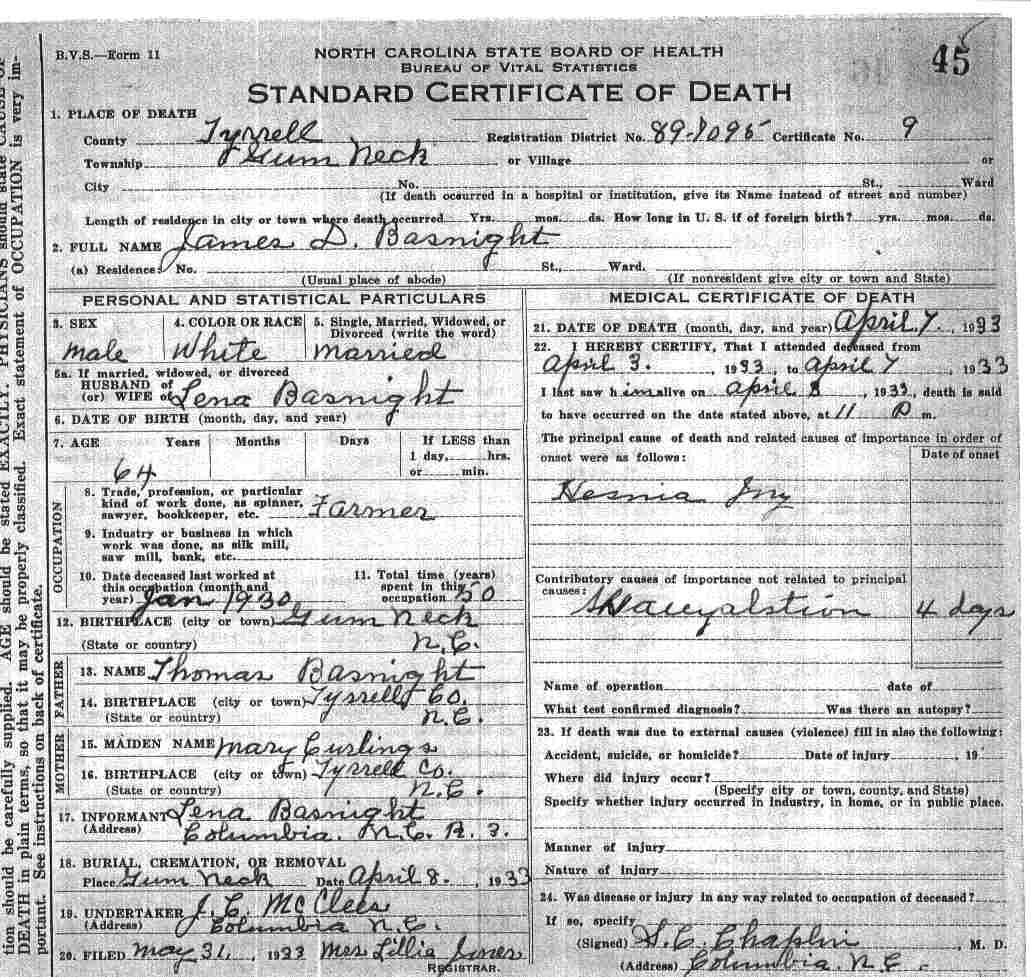 B.V.S.—Form 11
NORTH CAROLINA STATE BOARD OF HEALTH
BUREAU OF VITAL STATISTICS
45
STANDARD CERTIFICATE OF DEATH
1. PLACE OF DEATH
County Tyrrell Registration District No. 89-7095 Certificate No. 9
Township Gum Neck or Village or
City No. St., Ward
(If death occurred in a hospital or institution, give its Name instead of street and number)
Length of residence in city or town where death occurred Yrs. mos. ds. How long in U. S. if of foreign birth? yrs. mos. ds.
2. FULL NAME James D. Basnight
(a) Residence: No. St., Ward.
(Usual place of abode) (If nonresident give city or town and State)
PERSONAL AND STATISTICAL PARTICULARS
3. SEX 4. COLOR OR RACE 5. Single, Married, Widowed, or
Divorced (write the word)
male White married
5a. If married, widowed, or divorced
HUSBAND of
(or) WIFE of Lena Basnight
6. DATE OF BIRTH (month, day, and year)
7. AGE Years Months Days If LESS than
1 day, hrs.
or min.
64
OCCUPATION
8. Trade, profession, or particular
kind of work done, as spinner,
sawyer, bookkeeper, etc. Farmer
9. Industry or business in which
work was done, as silk mill,
saw mill, bank, etc.
10. Date deceased last worked at 11. Total time (years)
this occupation (month and spent in this
year) Jan 1930 occupation 50
12. BIRTHPLACE (city or town) Gum Neck
(State or country) N.C.
FATHER
13. NAME Thomas Basnight
14. BIRTHPLACE (city or town) Tyrrell Co.
(State or country) N.C.
MOTHER
15. MAIDEN NAME Mary Curlings
16. BIRTHPLACE (city or town) Tyrrell Co.
(State or country) N.C.
17. INFORMANT Lena Basnight
(Address) Columbia, N.C. R. 3.
18. BURIAL, CREMATION, OR REMOVAL
Place Gum Neck Date April 8. , 1933
19. UNDERTAKER J. C. McClees
(Address) Columbia N.C.
20. FILED May 31, 1933 Mrs Lillie Jones
REGISTRAR.
MEDICAL CERTIFICATE OF DEATH
21. DATE OF DEATH (month, day, and year) April 7. , 1933
22. I HEREBY CERTIFY, That I attended deceased from
April 3. , 1933, to April 7 , 1933
I last saw him alive on April 8 , 1933, death is said
to have occurred on the date stated above, at 11 P m.
The principal cause of death and related causes of importance in order of
onset were as follows: Date of onset
Hernia
Contributory causes of importance not related to principal
causes:
4 days
Name of operation date of
What test confirmed diagnosis? Was there an autopsy?
23. If death was due to external causes (violence) fill in also the following:
Accident, suicide, or homicide? Date of injury , 19
Where did injury occur?
(Specify city or town, county, and State)
Specify whether injury occurred in industry, in home, or in public place.
Manner of injury
Nature of injury
24. Was disease or injury in any way related to occupation of deceased?
If so, specify
(Signed) S. C. Chaplin , M. D.
(Address) Columbia N.C.
tion should be carefully supplied. AGE should be stated EXACTLY. PHYSICIANS should state CAUSE OF
DEATH in plain terms, so that it may be properly classified. Exact statement of OCCUPATION is very im-
portant. See instructions on back of certificate.